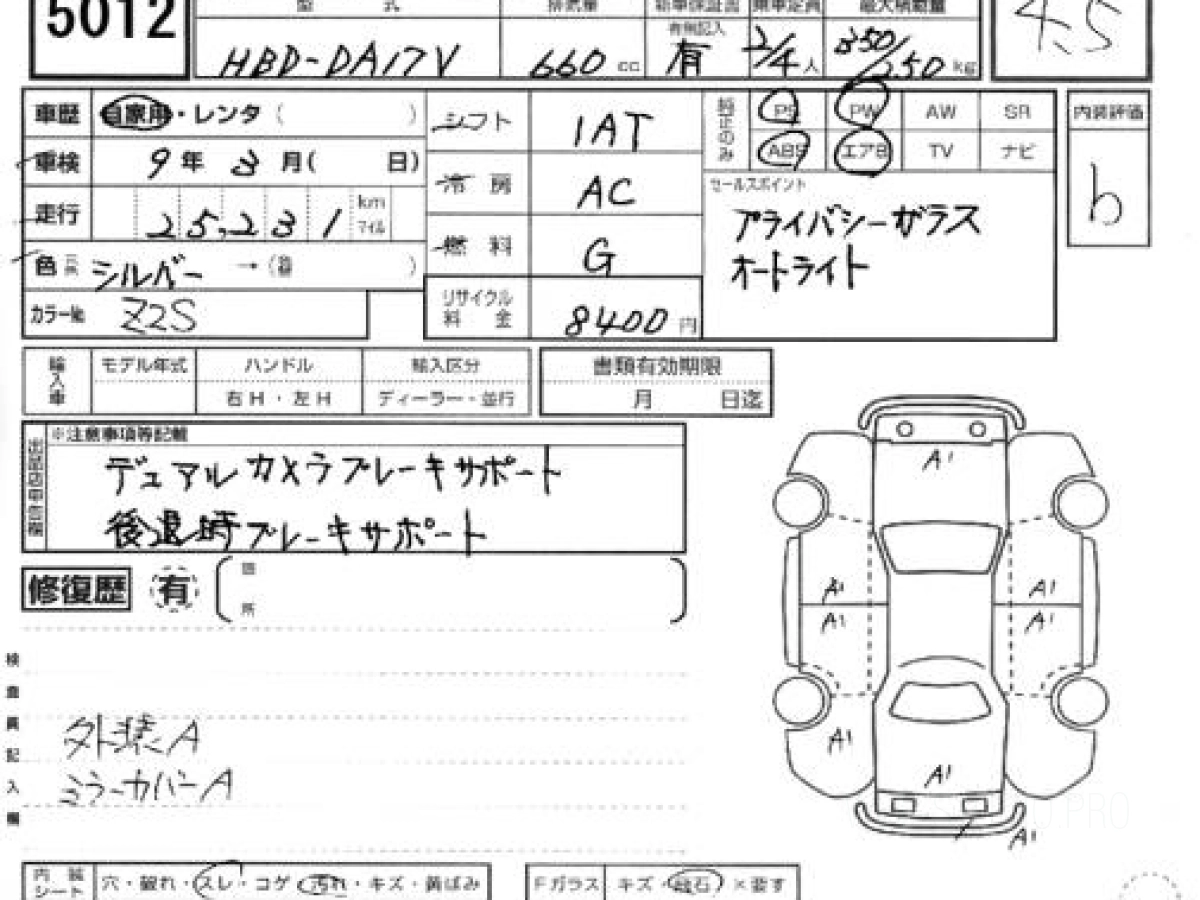 5012
型 式 排気量 新車保証書 乗車定員 最大積載量
有無記入
HBD-DA17V 660 cc 有 2/4 人 350/250 kg 4.5
車歴 自家用・レンタ( )
車検 9 年 3 月( 日)
走行 25,231 km マイル
色 元色 シルバー →( )
カラー№ Z2S
シフト 1AT
冷房 AC
燃料 G
リサイクル料金 8400 円
純正のみ PS PW AW SR
ABS エアB TV ナビ
セールスポイント
プライバシーガラス
オートライト
内装評価
b
輸入車 モデル年式 ハンドル 輸入区分
右H・左H ディーラー・並行
書類有効期限
月 日迄
出品店申告欄
※注意事項等記載
デュアルカメラブレーキサポート
後退時ブレーキサポート
修復歴 有 箇所
検査員記入欄
外装A
ミラーカバーA
A1
A1 A1
A1 A1
A1
A1
A1
.PRO
内装シート 穴・破れ・スレ・コゲ・汚れ・キズ・黄ばみ
Fガラス キズ・飛石・×要す